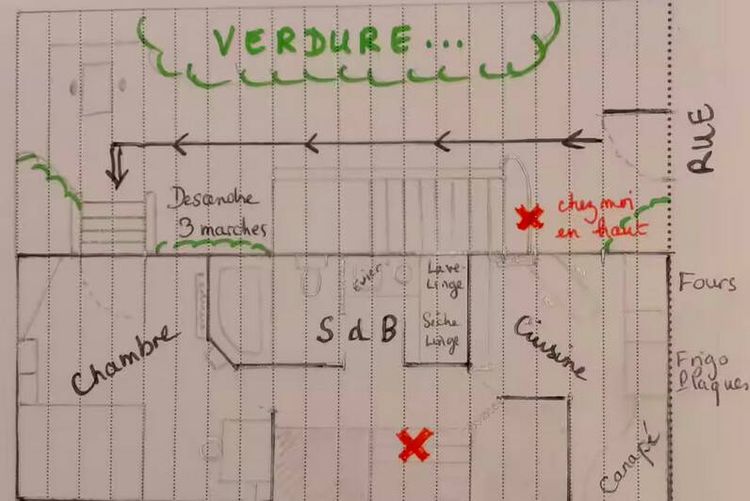 VERDURE...
RUE
Descendre
3 marches
chez moi
en haut
Fours
Evier
Lave-
Linge
Sèche
Linge
S d B
Cuisine
Chambre
Frigo
Plaques
Canapé